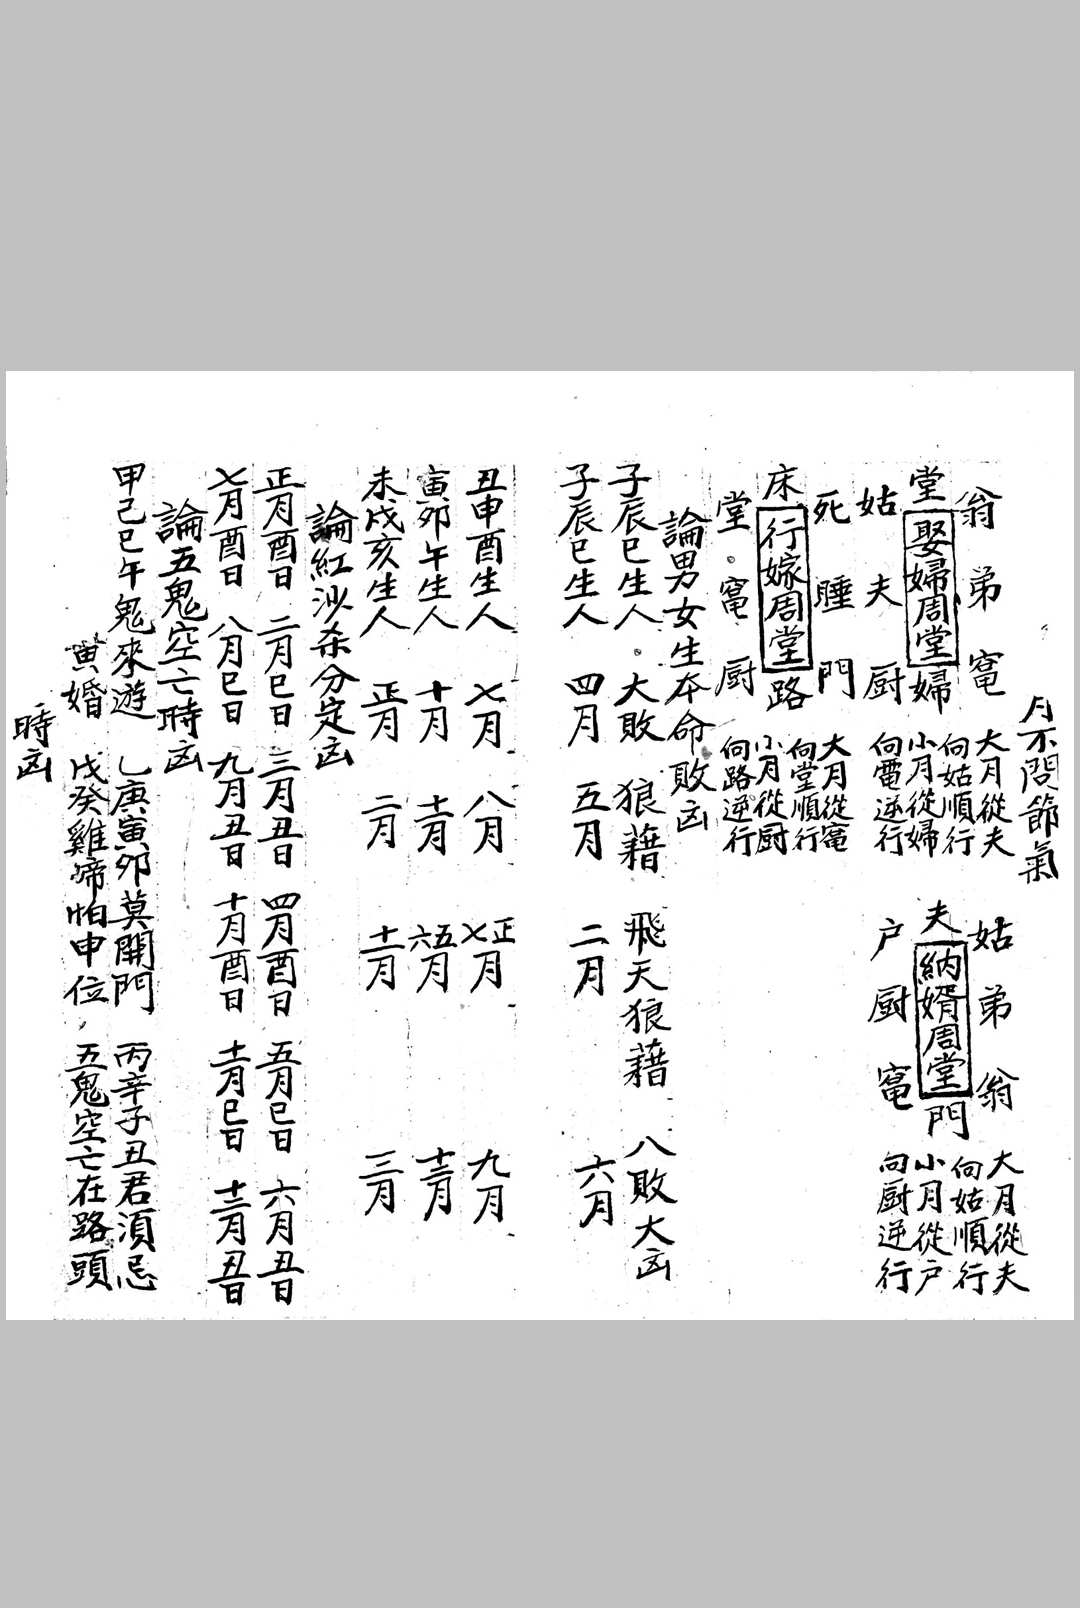 月不問節氣
翁 弟 竃
堂 娶婦周堂 婦
姑 夫 厨
大月從夫
向姑順行
小月從婦
向竃逆行
姑 弟 翁
夫 納婿周堂 門
户 厨 竃
大月從夫
向姑順行
小月從户
向厨逆行
死 睡 門
床 行嫁周堂 路
堂 竃 厨
大月從竃
向堂順行
小月從厨
向路逆行
論男女生夲命敗凶
子辰巳生人 大敗 狼藉 飛天狼藉 八敗大凶
子辰巳生人 四月 五月 二月 六月
丑申酉生人 七月 八月 正七月 九月
寅卯午生人 十月 十一月 五六月 十二月
未戌亥生人 正月 二月 十一月 三月
論紅沙杀分定凶
正月酉日 二月巳日 三月丑日 四月酉日 五月巳日 六月丑日
七月酉日 八月巳日 九月丑日 十月酉日 十一月巳日 十二月丑日
論五鬼空亡時凶
甲己巳午鬼來遊 乙庚寅卯莫開門 丙辛子丑君須忌
寅婚 戊癸雞啼怕申位 五鬼空亡在路頭
時凶